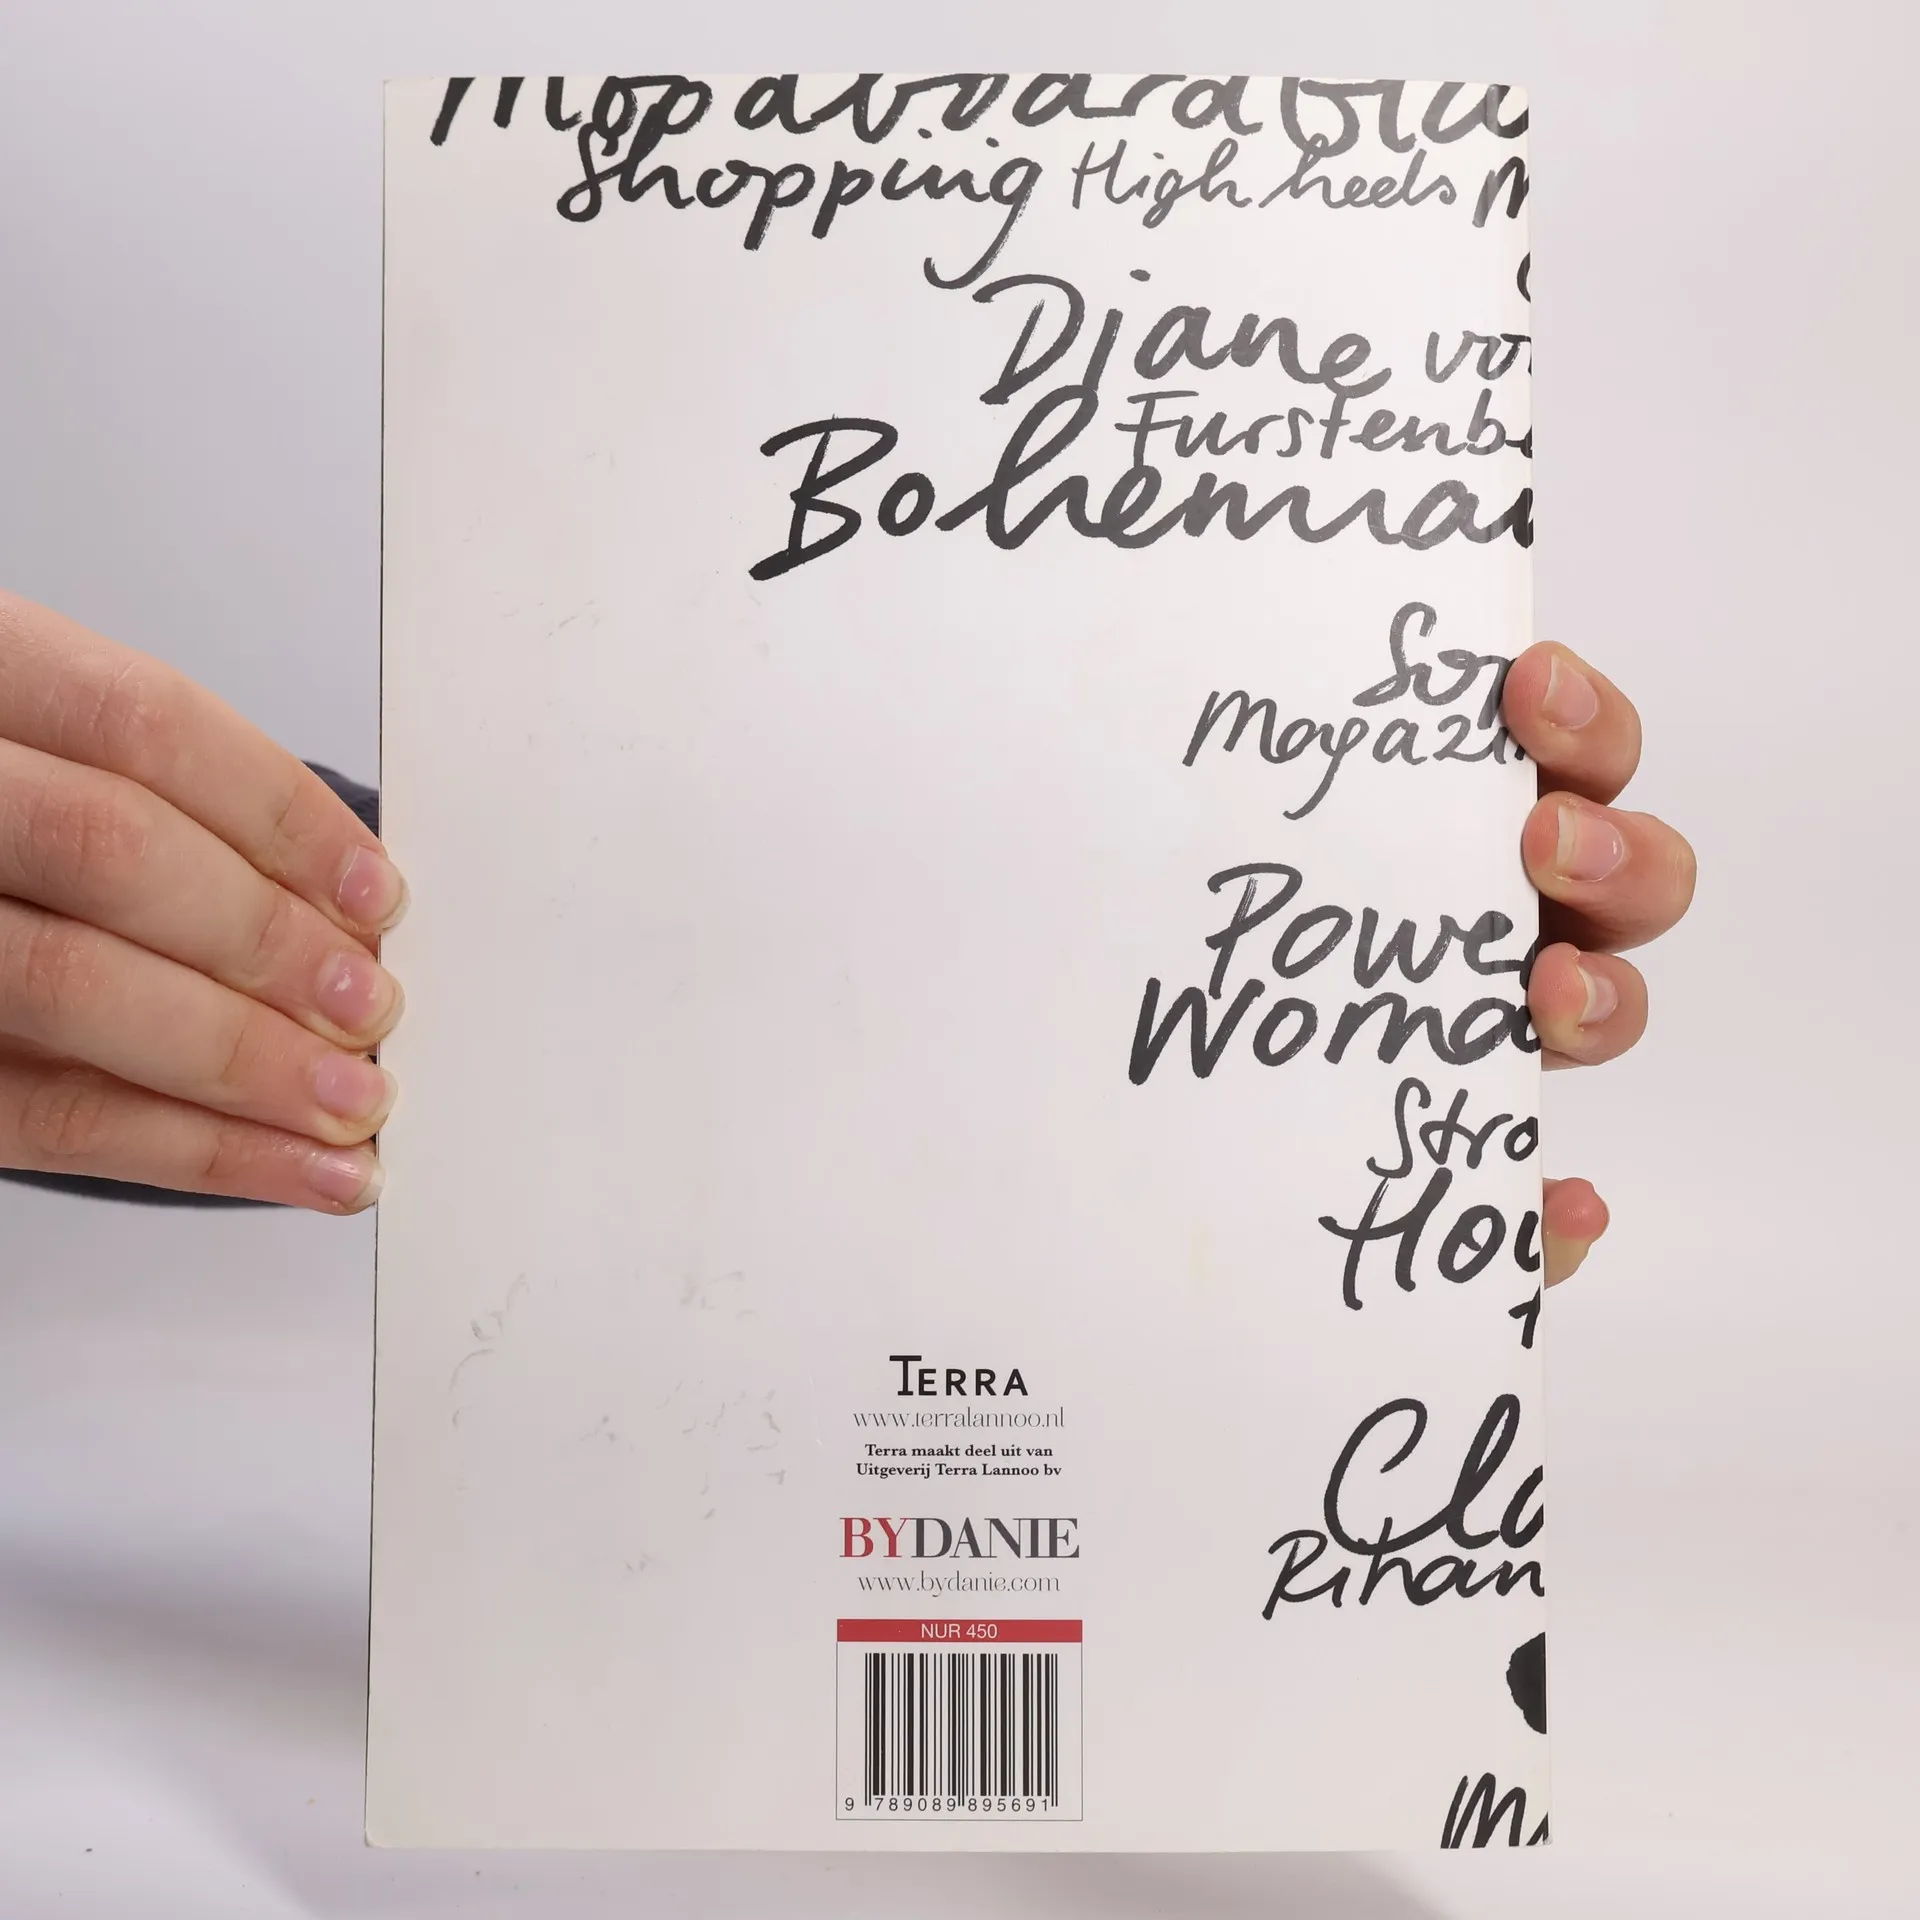 Moodboard Gla
Shopping High heels M
Diane vo
Furstenbe
Bohemian
Magazin
Powe
Woma
Stro
Hou
Cla
Rihan
TERRA
www.terralannoo.nl
Terra maakt deel uit van
Uitgeverij Terra Lannoo bv
BYDANIE
www.bydanie.com
NUR 450
9 789089 895691